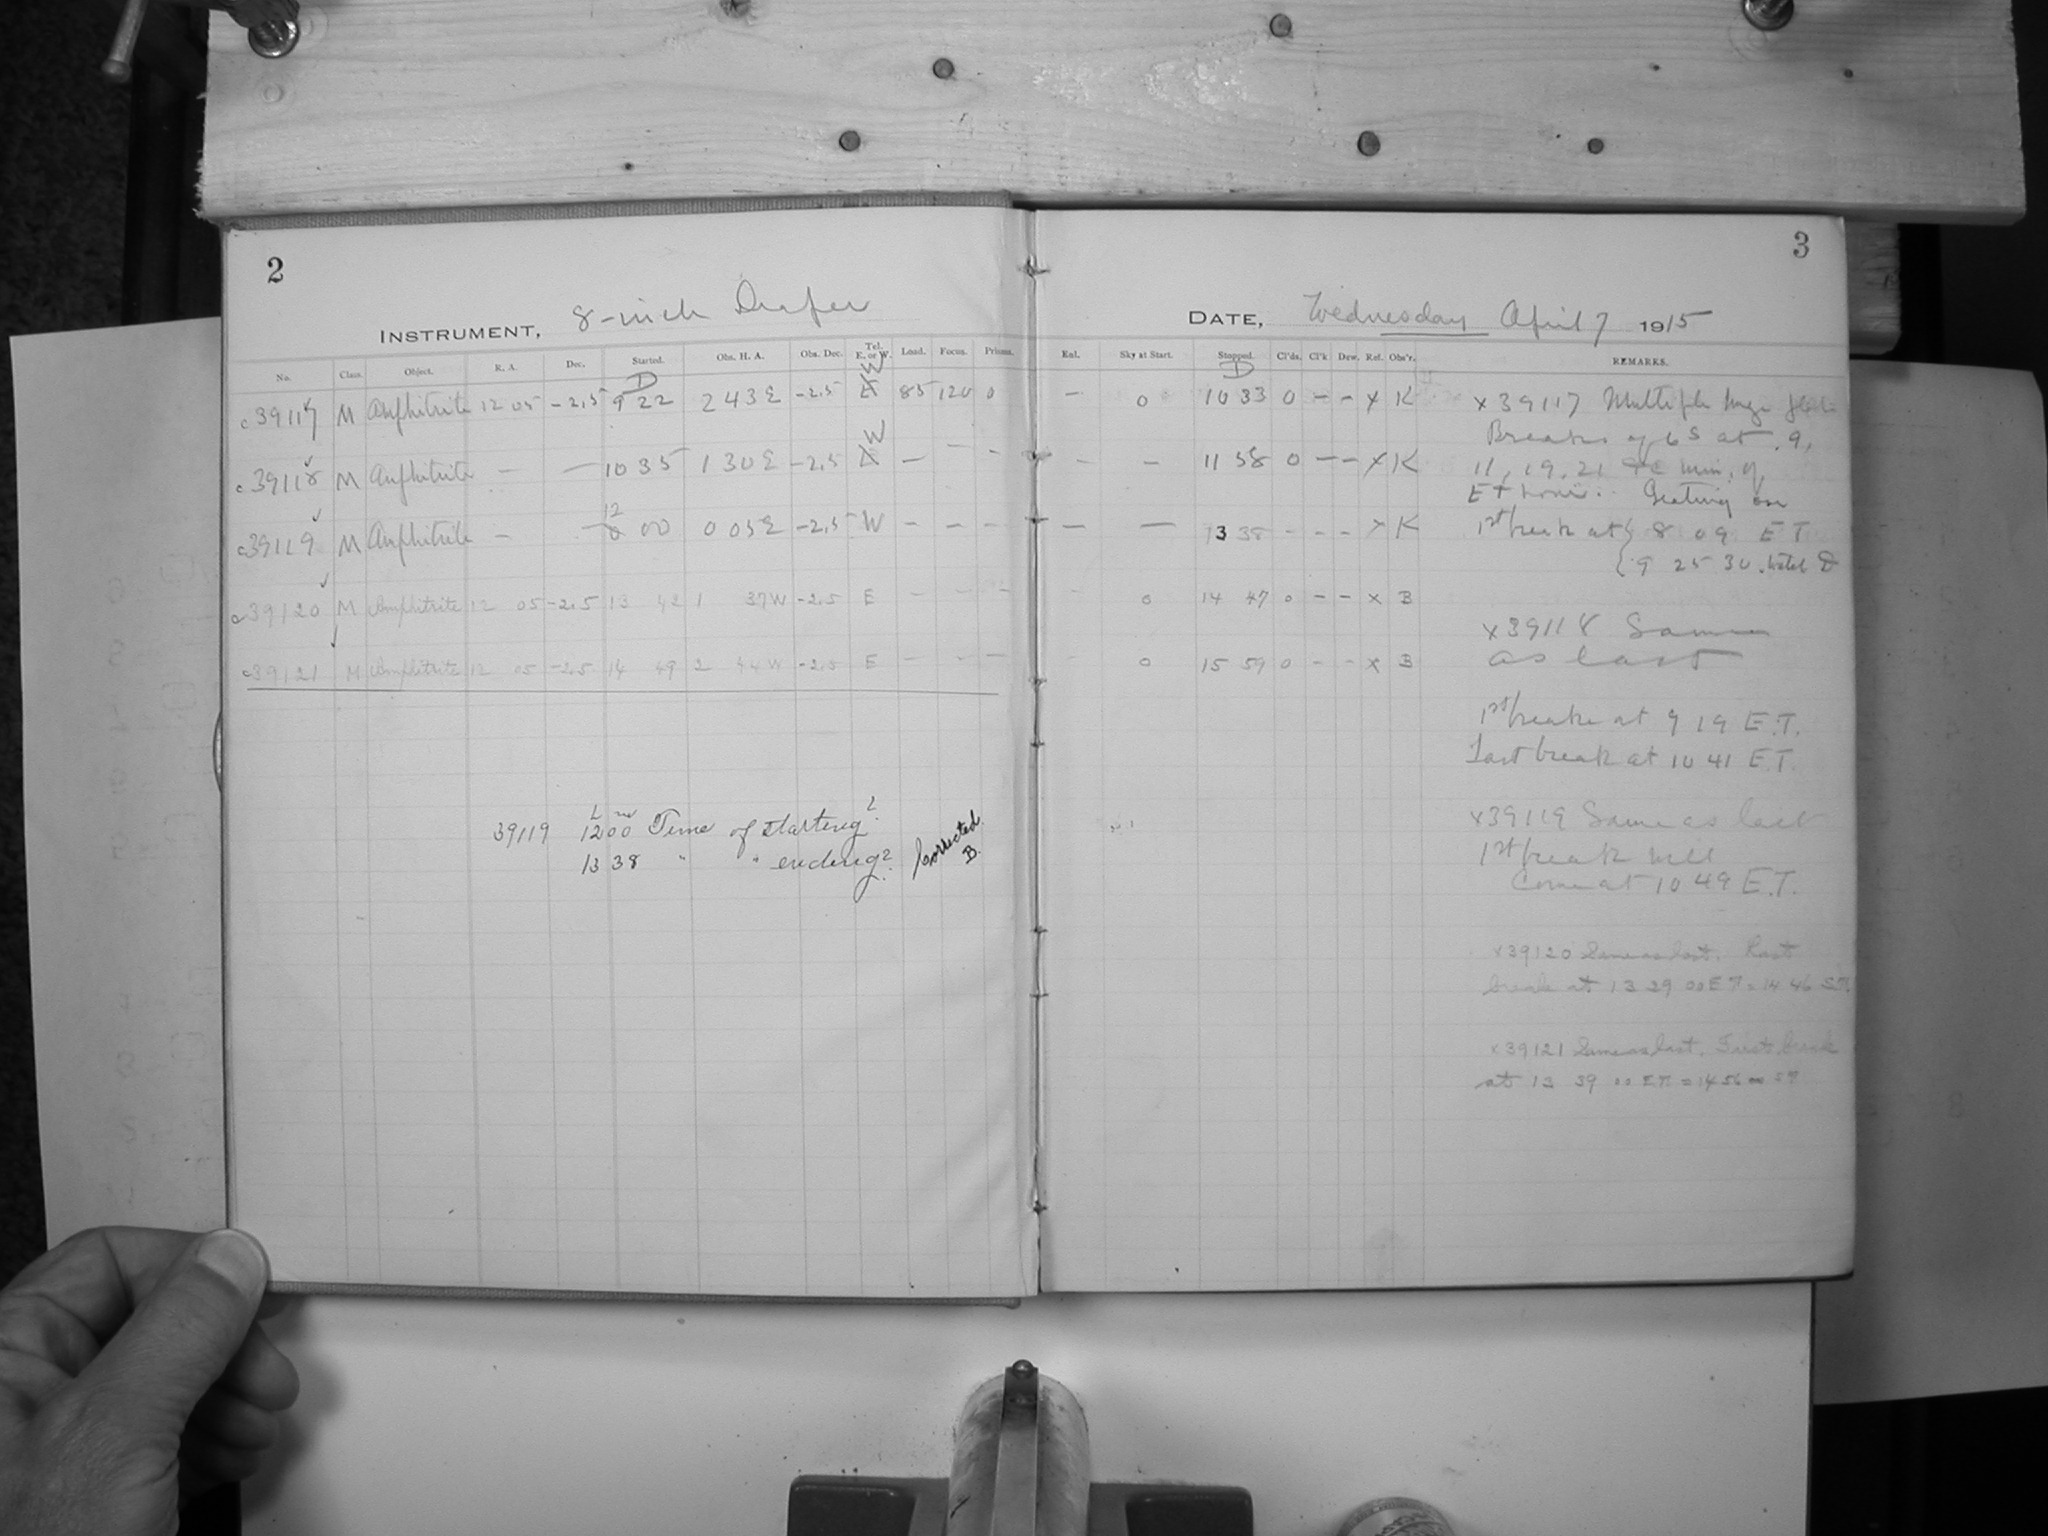 2
INSTRUMENT, 8-inch Draper
No. Class. Object. R. A. Dec. Started. Obs. H. A. Obs. Dec. Tel. E. or W. Load. Focus. Prisms.
D W
c39117 M Amphitrite 12 05 -2.5 9 22 2 43 E -2.5 E 85 120 0
W
c39118 M Amphitrite — — 10 35 1 30 E -2.5 — — -
12
c39119 M Amphitrite — — 00 0 05 E -2.5 W — — —
c39120 M Amphitrite 12 05 -2.5 13 42 1 37 W -2.5 E — — —
c39121 M Amphitrite 12 05 -2.5 14 49 2 44 W -2.5 E — — —
39119 12 00 Time of starting?
13 38 " " ending?
Corrected
B.
3
DATE, Wednesday April 7 1915
Exl. Sky at Start. Stopped. Cl'ds. Cl'k Dew. Ref. Obs'r. REMARKS.
D
— 0 10 33 0 — — x K
— — 11 58 0 — — x K
— — 13 38 - - - x K
— 0 14 47 0 — — x B
— 0 15 59 0 — — x B
x 39117 Multiple Image
Breaks of 6s at 9,
11, 19, 21 etc min. of
ET hour. Grating on
1st break at { 8 09 E T
{ 9 25 30 watch D
x 39118 Same
as last
1st break at 9 19 E.T.
Last break at 10 41 E.T.
x39119 Same as last
1st break will
Come at 10 49 E.T.
x39120 Same as last. Last
break at 13 29 00 ET = 14 46 ST.
x39121 Same as last. First break
at 13 39 00 ET = 14 56 00 ST